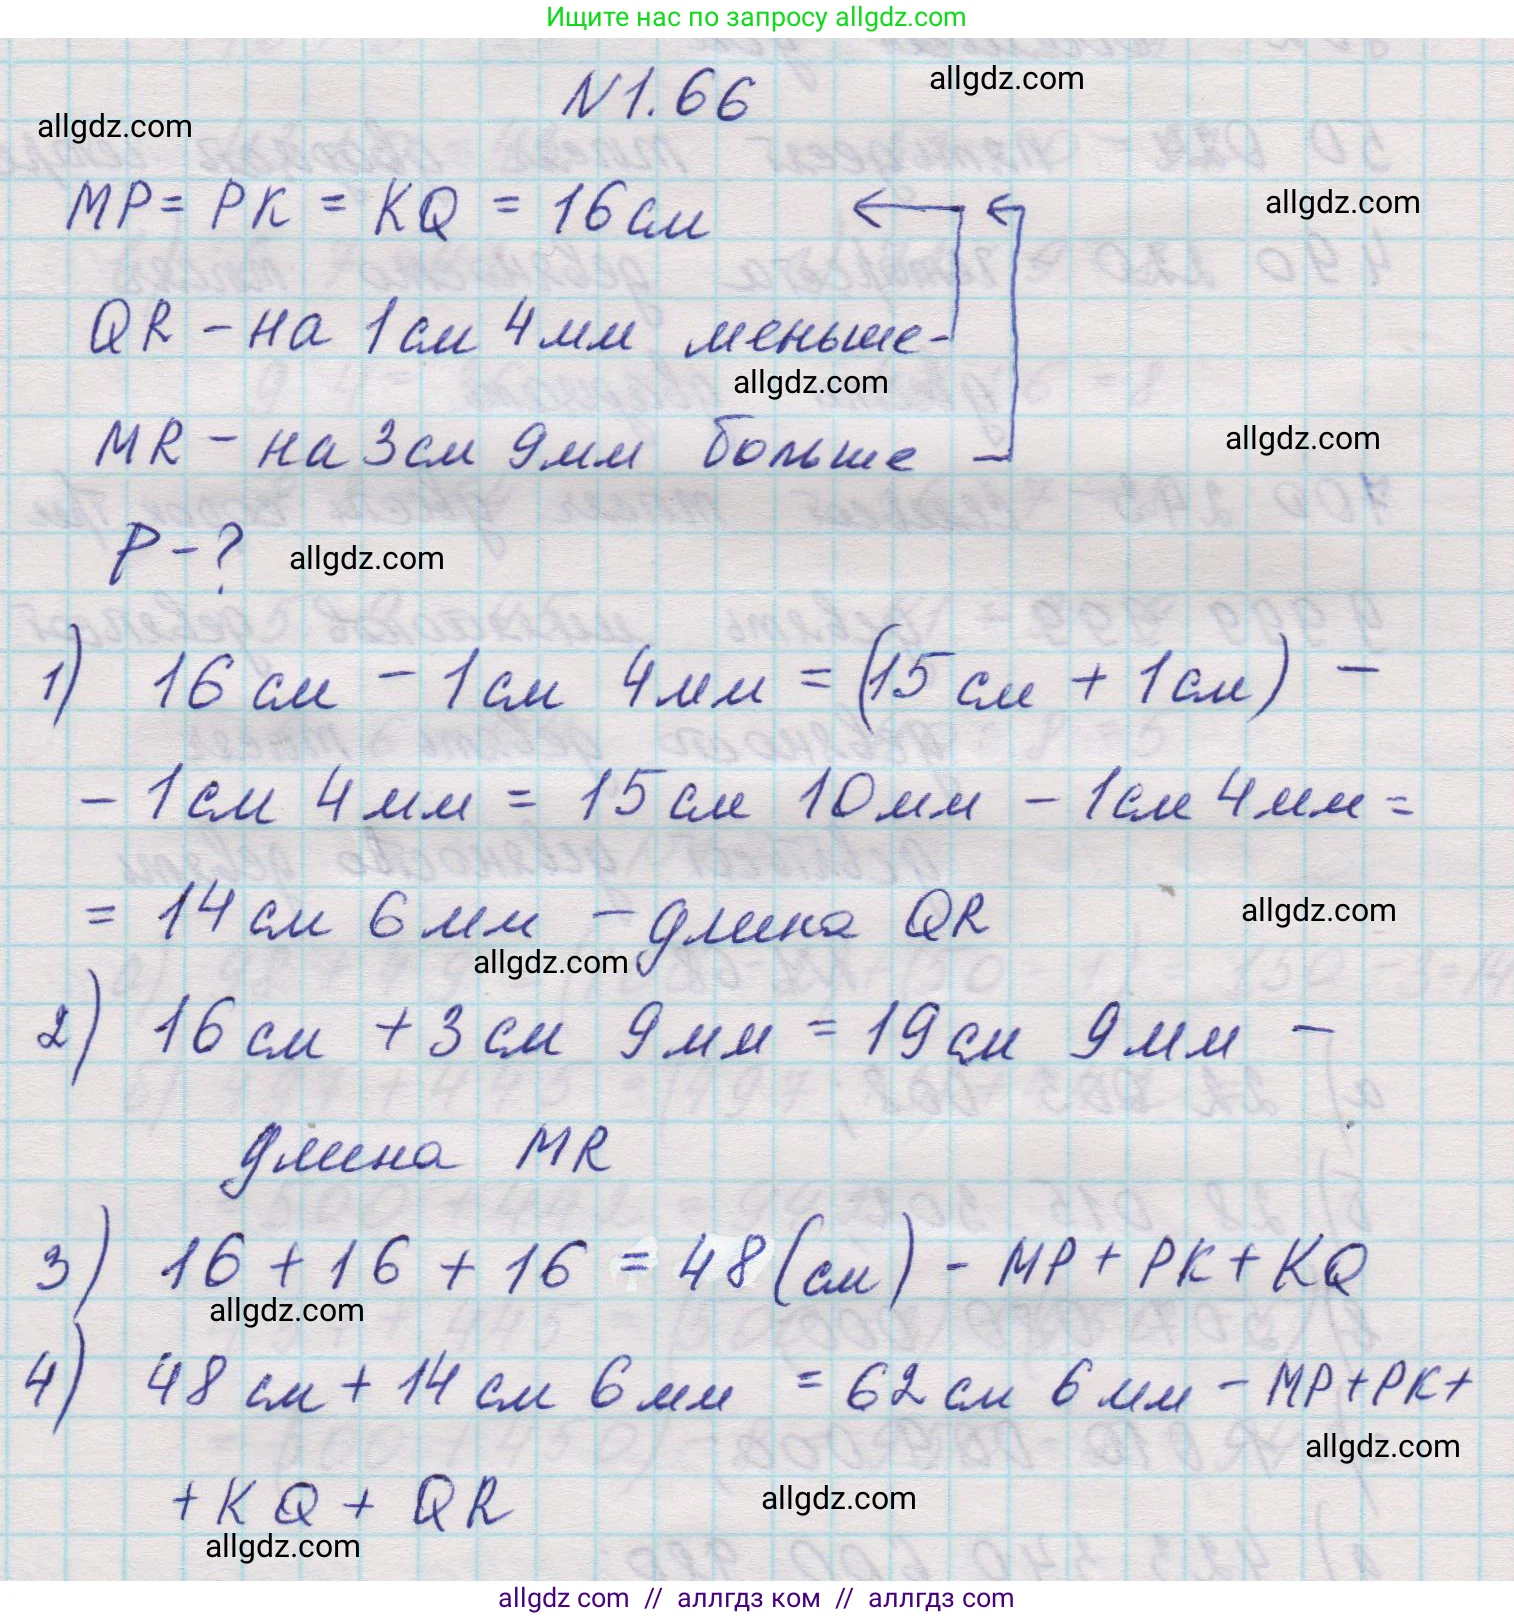 Ищите нас по запросу allgdz.com
N 1.66
allgdz.com
allgdz.com
MP = PK = KQ = 16 см
allgdz.com
QR - на 1 см 4 мм меньше -
allgdz.com
MR - на 3 см 9 мм больше -
allgdz.com
P - ?
allgdz.com
1) 16 см - 1 см 4 мм = (15 см + 1 см) -
- 1 см 4 мм = 15 см 10 мм - 1 см 4 мм =
= 14 см 6 мм - длина QR
allgdz.com
allgdz.com
2) 16 см + 3 см 9 мм = 19 см 9 мм -
длина MR
3) 16 + 16 + 16 = 48 (см) - MP + PK + KQ
allgdz.com
4) 48 см + 14 см 6 мм = 62 см 6 мм - MP + PK +
allgdz.com
+ KQ + QR
allgdz.com
allgdz.com
allgdz.com // аллгдз ком // аллгдз.com